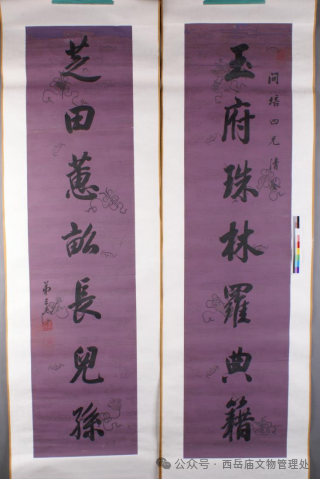 培四兄清
玉府珠林羅典籍
芝田蕙畝長兒孫
弟
公众号 · 西岳庙文物管理处